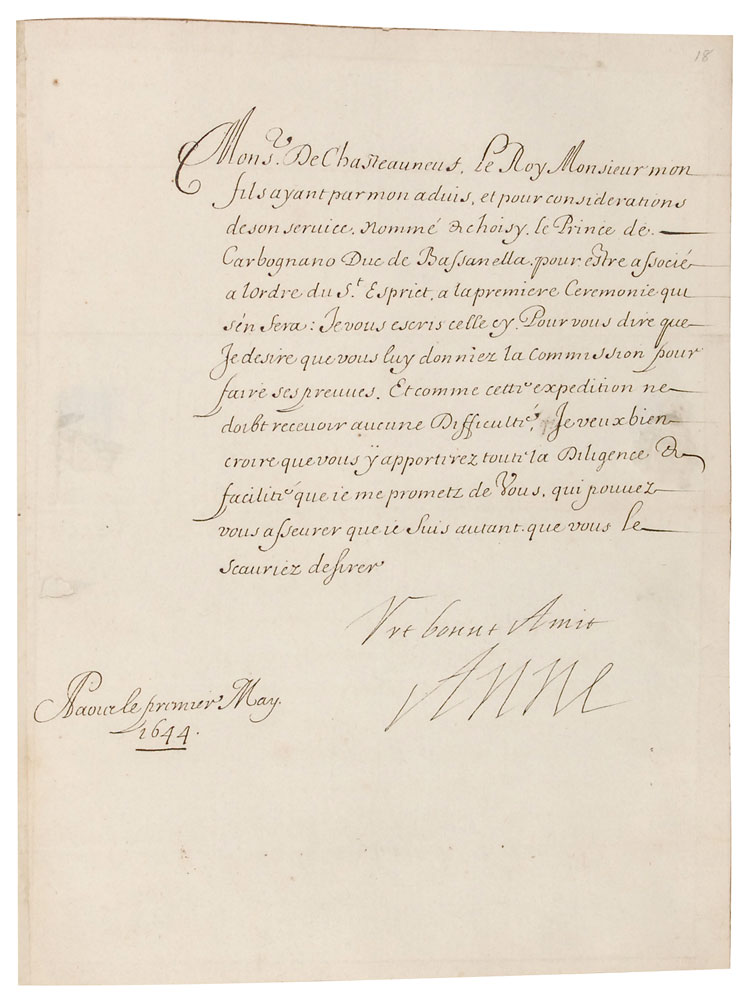 18
Mons.r De Chasteauneuf, Le Roy Monsieur mon
fils ayant par mon aduis, et pour considerations
de son service, nommé & choisy, le Prince de
Carbognano Duc de Bassanella, pour estre associé
a lOrdre du S.t Espriet, a la premiere Ceremonie qui
s'en Sera: Je vous escris celle cy, Pour vous dire que
Je desire que vous luy donniez la Commission pour
faire ses preuues. Et comme cette expedition ne
doibt recevoir aucune Difficulté, Je veux bien
croire que vous ÿ apporterez toute la Diligence &
facilité que ie me prometz de Vous, qui pouvez
vous asseurer que ie suis autant que vous le
Scauriez desirer
Vre bonne Amie
Anne
le premier May.
1644.